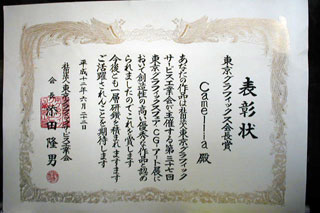 表彰状
東京グラフィックス会長賞
Camellia 殿
あなたの作品は社団法人東京グラフィック
サービス工業会が主催する第三十七回
東京グラフィックスフェアCG・アート展に
おいて創造性の高い優秀な作品と認め
られましたのでこれを賞します
今後とも一層研鑽を積まれますます
ご活躍されんことを期待します
平成十二年六月二十二日
社団法人東京グラフィックサービス工業会
会長 田隆男